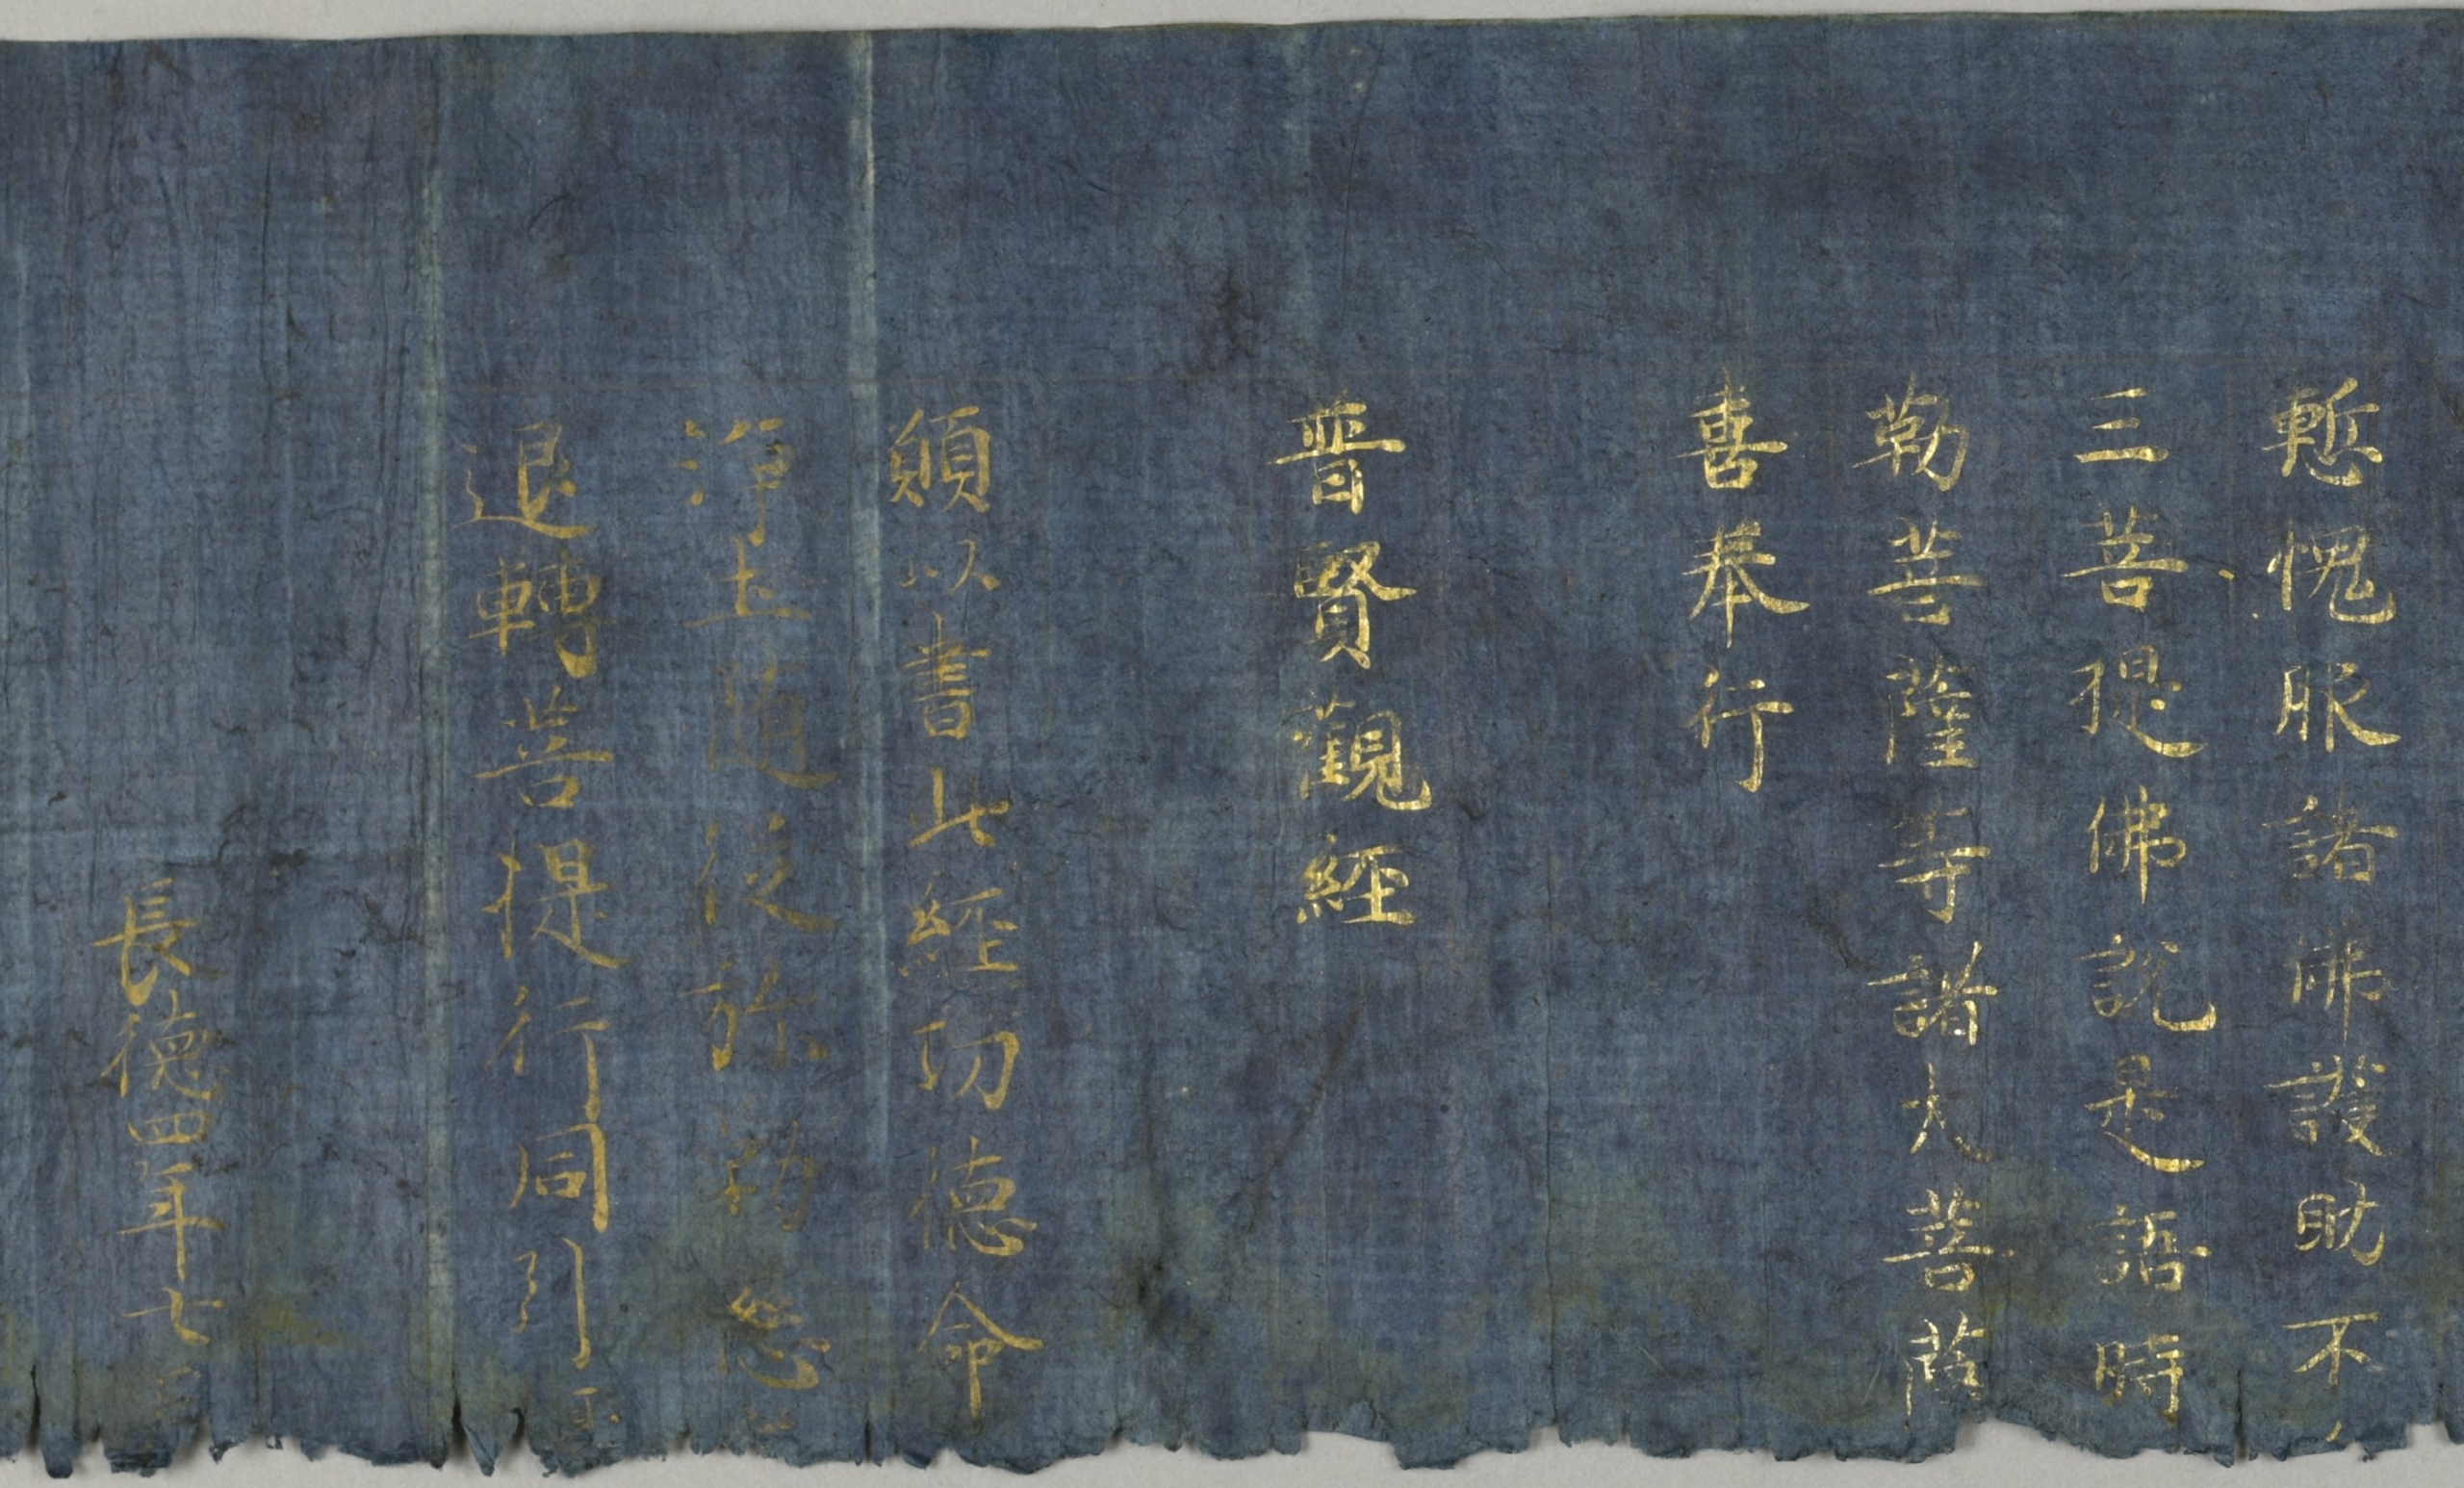 慙愧服諸佛護助不
三菩提佛說是語時
勒菩薩等諸大菩薩
喜奉行
普賢觀經
願以書此經功徳命
淨土随從弥勒慈
退轉菩提行同引
長徳四年七月